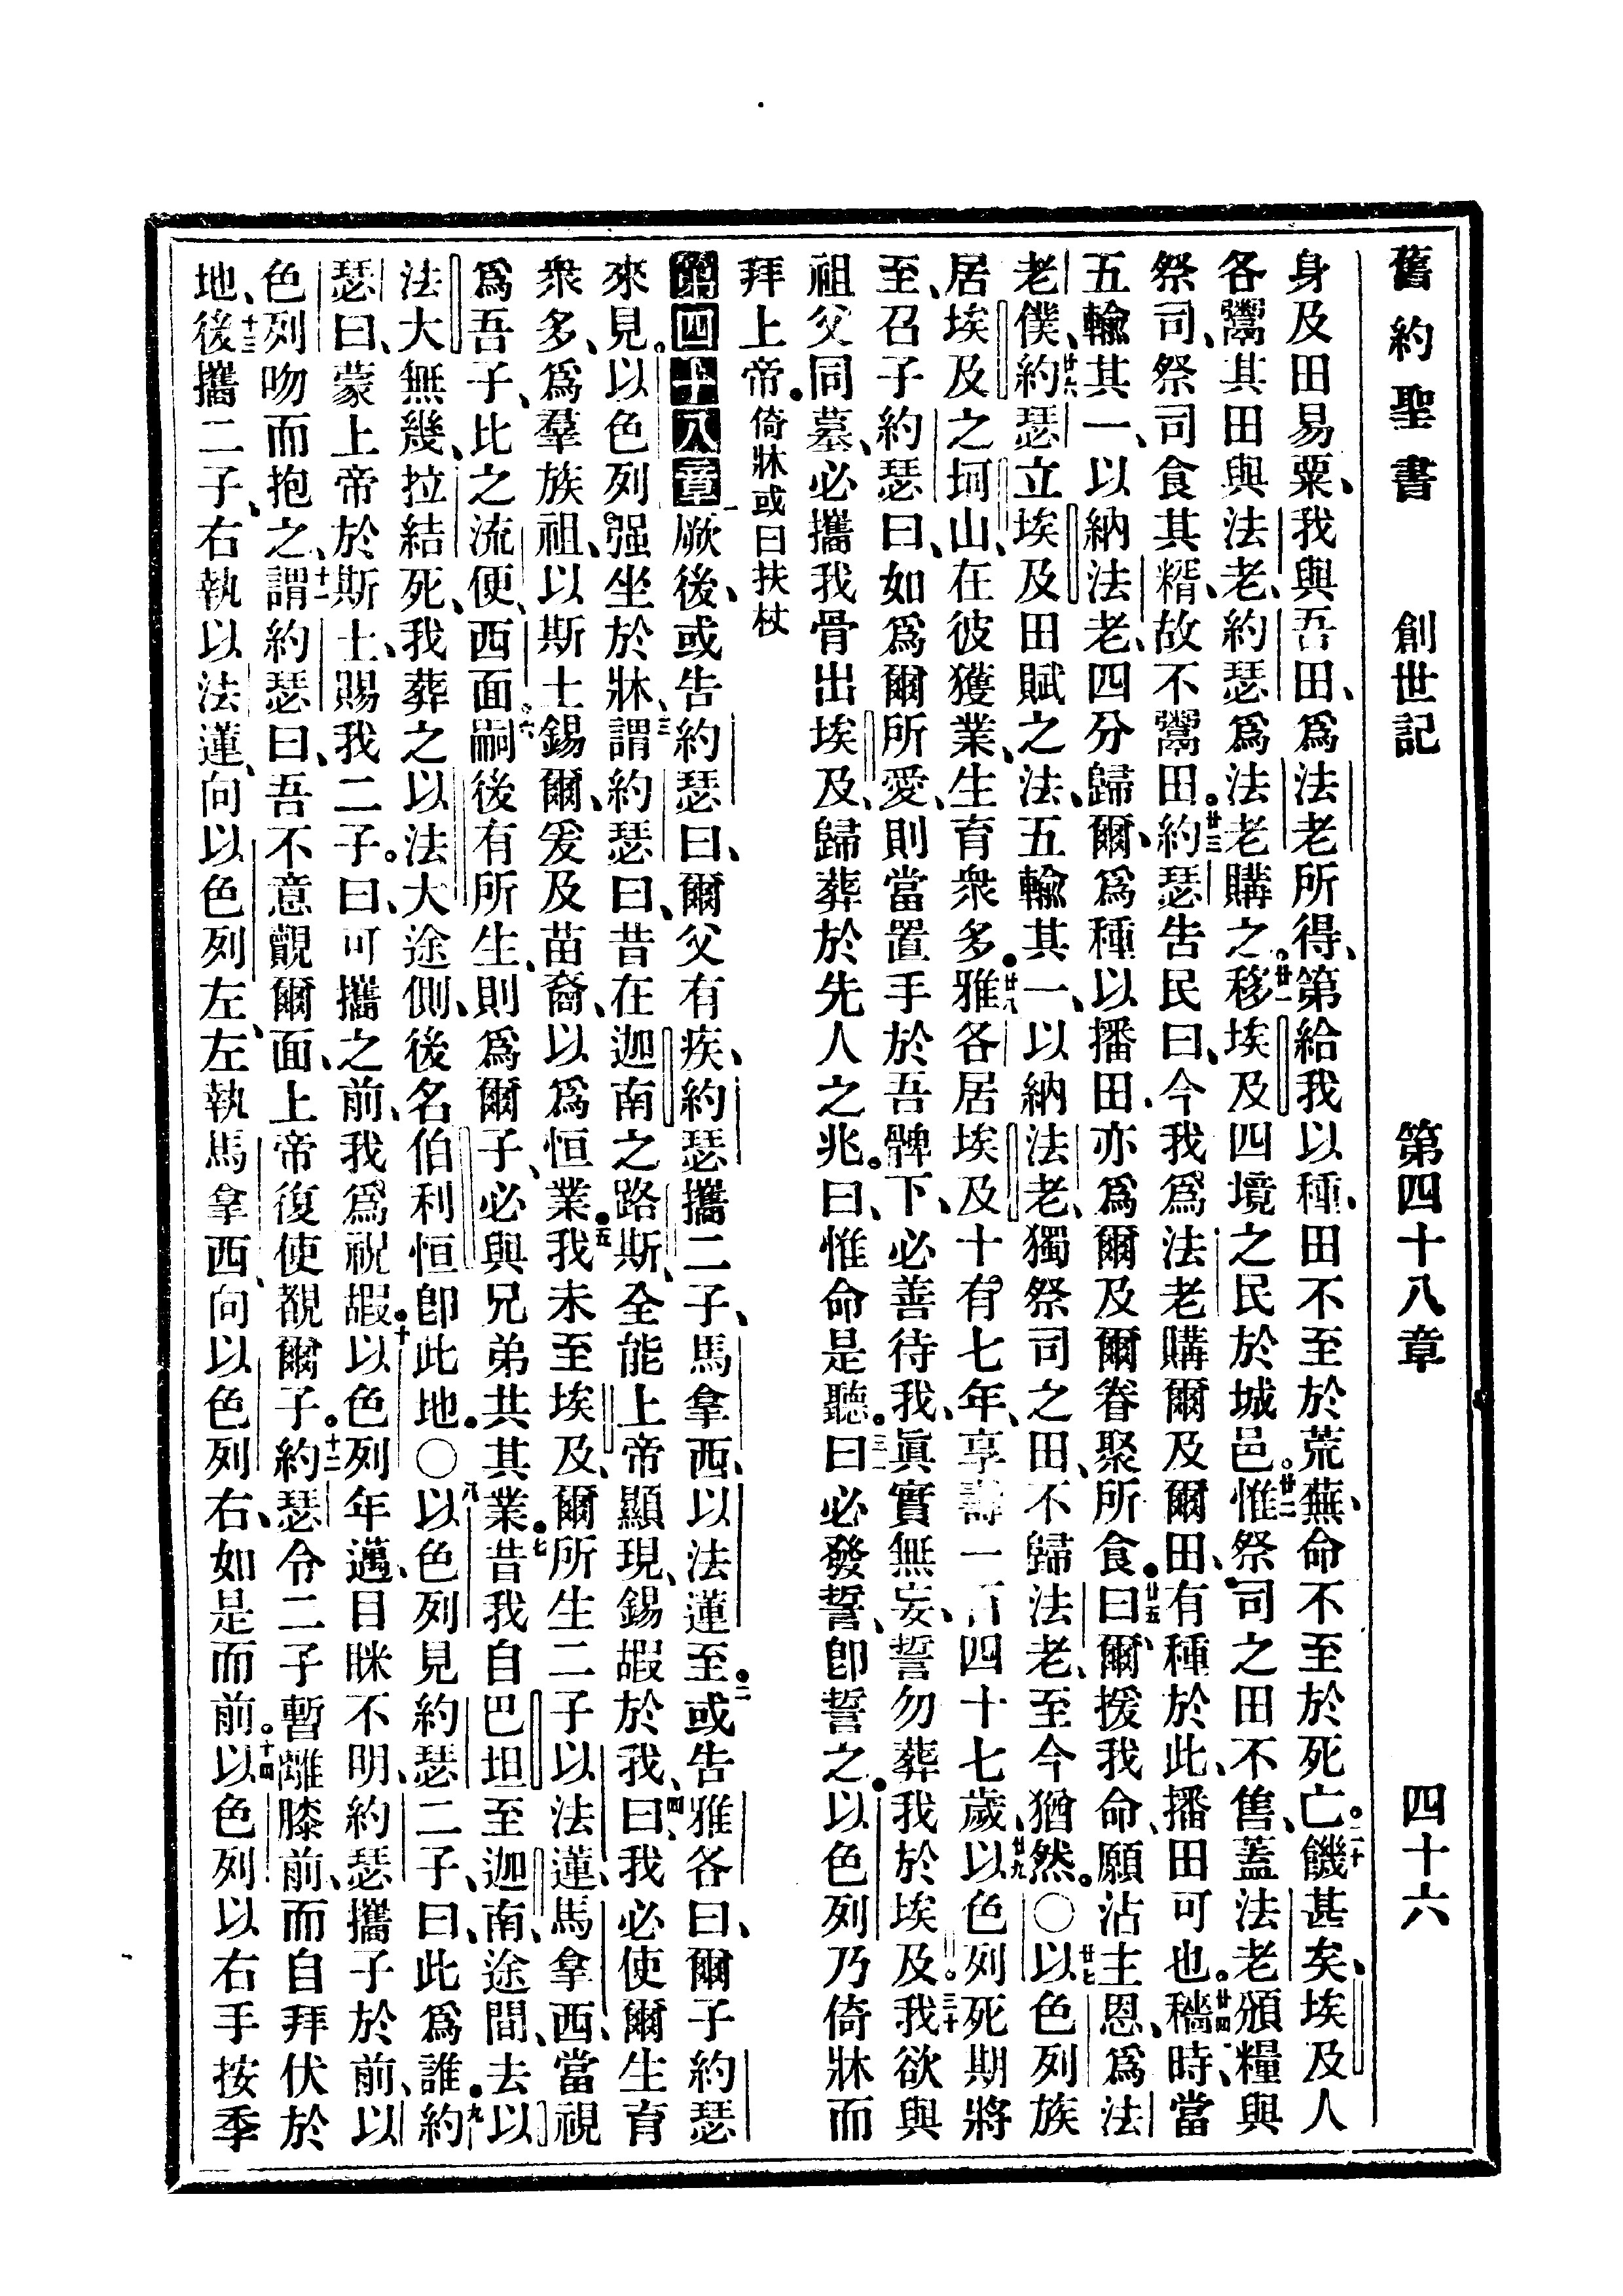 舊約聖書 創世記 第四十八章 四十六
身及田易粟、我與吾田、爲法老所得、第給我以種、田不至於荒蕪、命不至於死亡。二十饑甚矣、埃及人
各鬻其田與法老、約瑟爲法老購之。廿一移埃及四境之民於城邑。廿二惟祭司之田不售、蓋法老頒糧與
祭司、祭司食其糈、故不鬻田。廿三約瑟告民曰、今我爲法老購爾及爾田、有種於此、播田可也。廿四穡時、當
五輸其一、以納法老、四分歸爾、爲種以播田、亦爲爾及爾眷聚所食。廿五曰、爾援我命、願沾主恩、爲法
老僕、廿六約瑟立埃及田賦之法、五輸其一、以納法老、獨祭司之田、不歸法老、至今猶然。○廿七以色列族
居埃及之坷山、在彼獲業、生育衆多。廿八雅各居埃及十有七年、享壽一百四十七歲、廿九以色列死期將
至、召子約瑟曰、如爲爾所愛、則當置手於吾髀下、必善待我、眞實無妄、誓勿葬我於埃及。三十我欲與
祖父同墓、必攜我骨出埃及、歸葬於先人之兆。曰、惟命是聽。三一曰必發誓、卽誓之。以色列乃倚牀而
拜上帝。倚牀或曰扶杖
第四十八章一厥後、或告約瑟曰、爾父有疾、約瑟攜二子、馬拿西、以法蓮至。二或告雅各曰、爾子約瑟
來見。以色列強坐於牀、三謂約瑟曰、昔在迦南之路斯、全能上帝顯現、錫嘏於我、四曰、我必使爾生育
衆多、爲羣族祖、以斯土錫爾、爰及苗裔、以爲恒業。五我未至埃及、爾所生二子以法蓮、馬拿西、當視
爲吾子、比之流便、西面。六嗣後有所生、則爲爾子、必與兄弟共其業。七昔我自巴坦至迦南、途間、去以
法大無幾、拉結死、我葬之以法大途側、後名伯利恒卽此地。○八以色列見約瑟二子、曰、此爲誰。九約
瑟曰、蒙上帝於斯土、賜我二子。曰、可攜之前、我爲祝嘏。十以色列年邁、目眯不明、約瑟攜子於前、以
色列吻而抱之、十一謂約瑟曰、吾不意覿爾面、上帝復使覩爾子。十二約瑟令二子暫離膝前、而自拜伏於
地、十三後攜二子、右執以法蓮、向以色列左、左執馬拿西、向以色列右、如是而前。十四以色列以右手按季